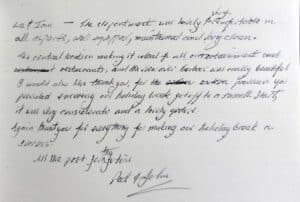 very
The apartment was lovely comfortable in
all aspects, well equipped, maintained and very clean.
The central location making it ideal for all entertainment and
restaurants, and the sea was really beautiful
I would also like to thank you for the provisions you
provided ensuring our holiday break got off to a smooth start,
it was very considerate and a lovely gesture.
Again thank you for everything for making our holiday break a
success.
All the best for the future